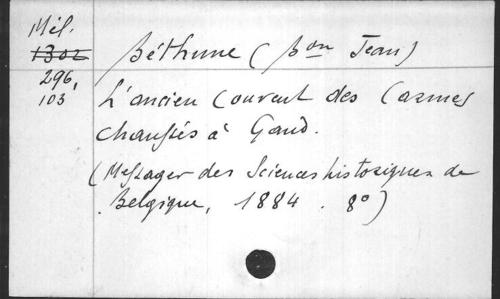 Mél.
1302
296,
103
Béthune (Bon Jean)
L'ancien Couvent des Carmes
chaussés à Gand.
(Messager des Sciences historiques de
Belgique, 1884. 8°)